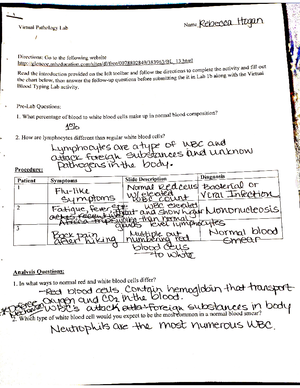 Virtual Pathology Lab
Name Rebecca Hogan
Directions: Go to the following website
Read the introduction provided on the left toolbar and follow the directions to complete the activity and fill out
the chart below, then answer the follow-up questions before submitting the it in Lab 15 along with the Virtual
Blood Typing Lab activity.
Pre-Lab Questions:
1. What percentage of blood to white blood cells make up in normal blood composition?
1%
2. How are lymphocytes different than regular white blood cells?
Lymphocytes are a type of WBC and
attack foreign substances and unknown
pathogens in the body.
Procedure:
Patient Symptoms Slide Description Diagnosis
1 Flu-like symptoms Normal red cells w/ elevated WBC count Bacterial or Viral Infection
2 Fatigue, fever, WBC elevated and show higher level lymphocytes Mononucleosis
3 Back pain after hiking Multiple out numbering red blood cells to white Normal blood smear
Analysis Questions:
1. In what ways to normal red and white blood cells differ?
-Red blood cells contain hemoglobin that transport
oxygen and CO2 in the blood.
WBC's attack foreign substances in body
2. Which type of white blood cell would you expect to be the most common in a normal blood smear?
Neutrophils are the most numerous WBC.